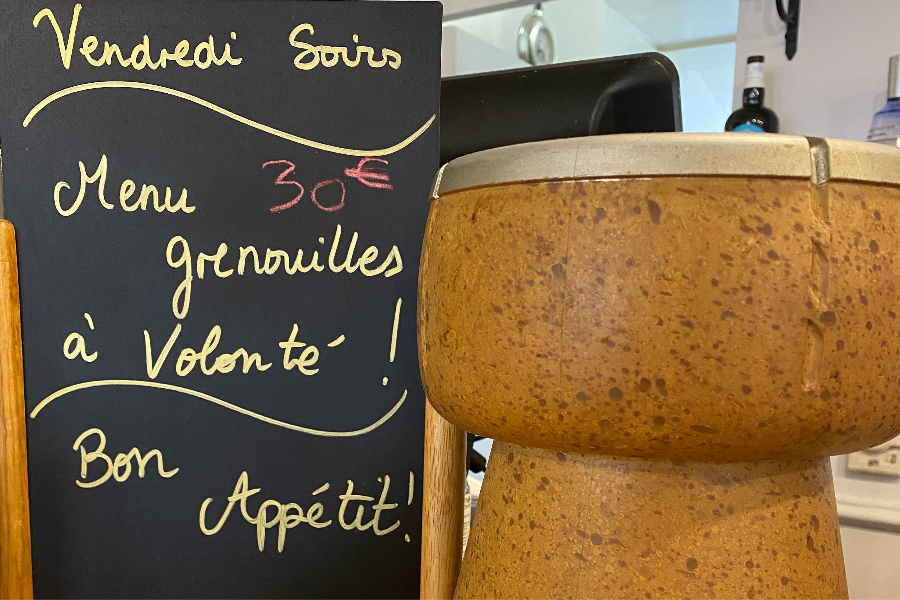 Vendredi Soirs
Menu 30€
grenouilles
à Volonté !
Bon
Appétit !